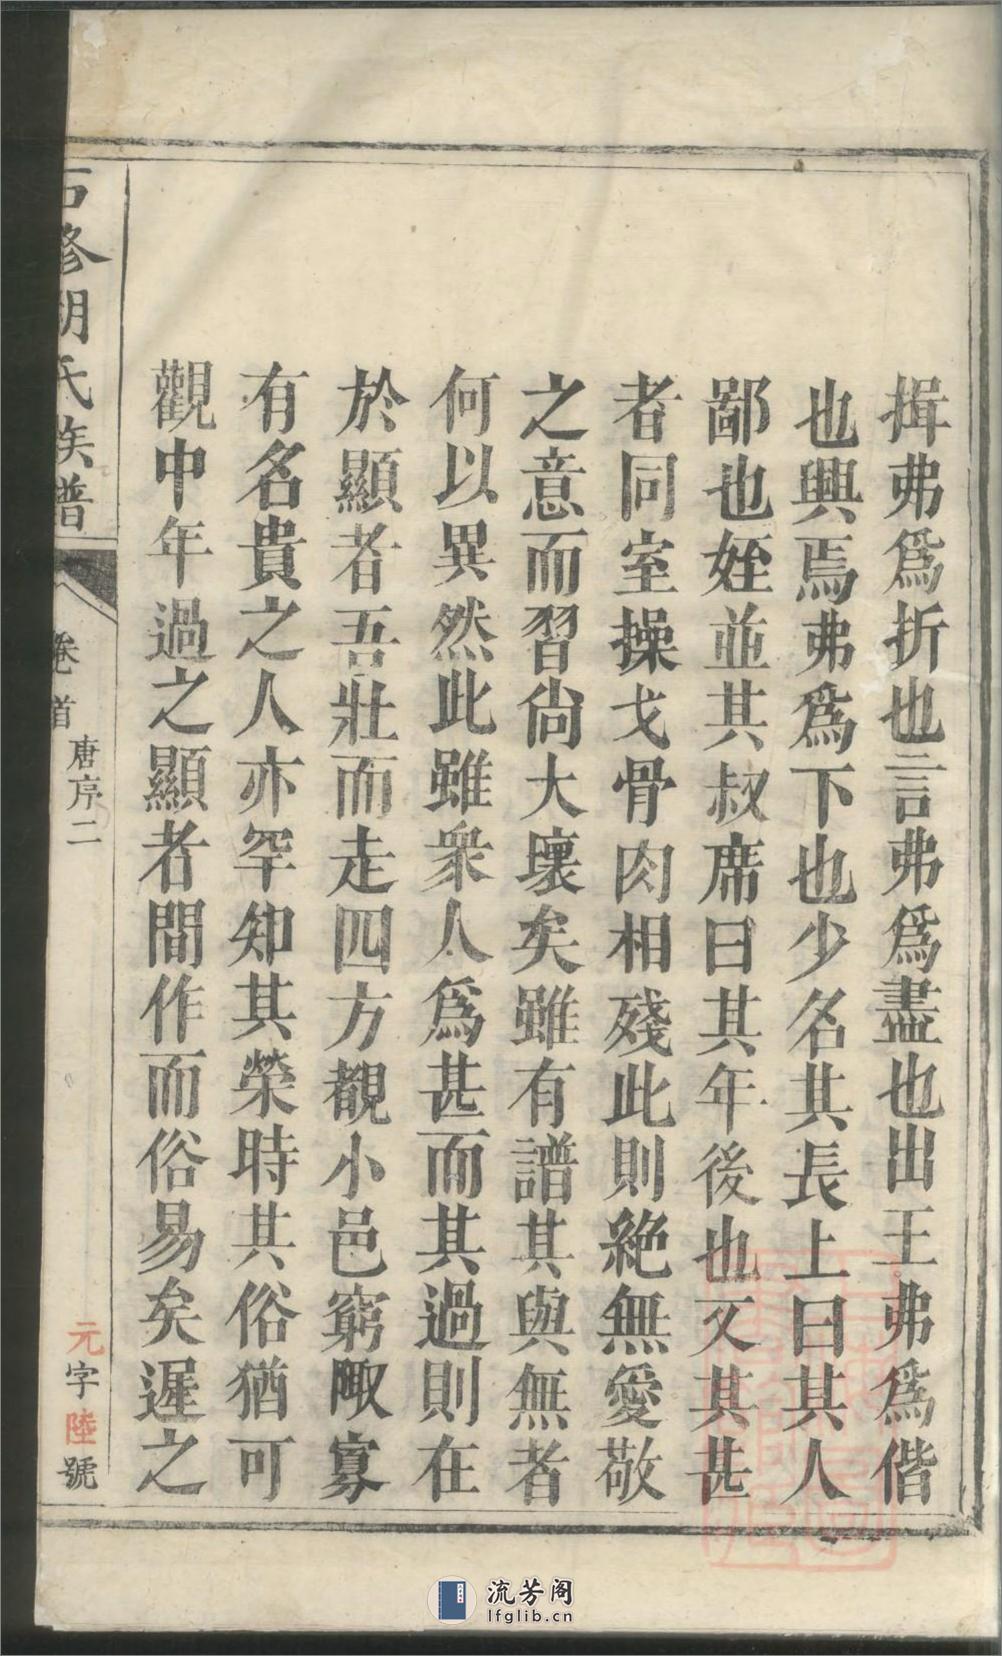 揖弗爲折也言弗爲盡也出王弗爲偕
也興焉弗爲下也少名其長上曰其人
鄙也姪並其叔席曰其年後也又其甚
者同室操戈骨肉相殘此則絶無愛敬
之意而習尙大壞矣雖有譜其與無者
何以異然此雖衆人爲甚而其過則在
於顯者吾壯而走四方覩小邑窮陬寡
有名貴之人亦罕知其榮時其俗猶可
觀中年過之顯者間作而俗易矣遲之
石修胡氏族譜
卷首
唐序二
元字陸號
流芳阁
lfglib.cn